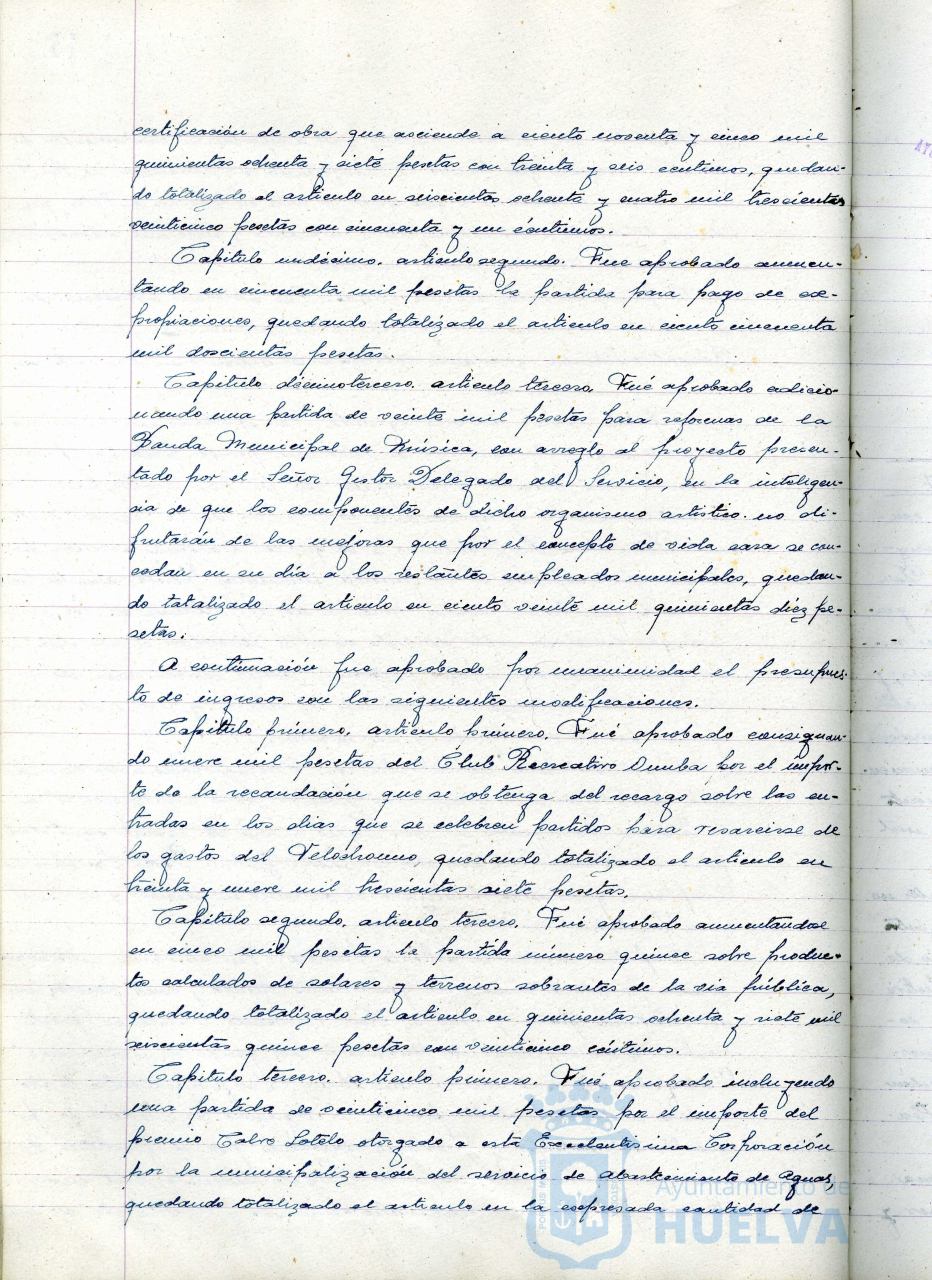 certificación de obra que asciende a ciento noventa y cinco mil
quinientas ochenta y siete pesetas con treinta y seis centimos, quedan-
do totalizado el articulo en seiscientas ochenta y cuatro mil trescientas
veinticinco pesetas con cincuenta y un céntimos.
Capitulo undécimo. articulo segundo. Fue aprobado aumen-
tando en cincuenta mil pesetas la partida para pago de ex-
propiaciones, quedando totalizado el articulo en ciento cincuenta
mil doscientas pesetas.
Capitulo décimotercero. articulo tercero. Fué aprobado adicio-
nando una partida de veinte mil pesetas para reformas de la
Banda Municipal de Música, con arreglo al proyecto presen-
tado por el Señor Gestor Delegado del Servicio, en la inteligen-
cia de que los componentes de dicho organismo artistico no di-
frutarán de las mejoras que por el concepto de vida cara se con-
cedan en su día a los restantes empleados municipales, quedan-
do totalizado el articulo en ciento veinte mil quinientas diez pe-
setas.
A continuación fue aprobado por unanimidad el presupues-
to de ingresos con las siguientes modificaciones.
Capitulo primero. articulo primero. Fué aprobado consignan-
do nueve mil pesetas del Club Recreativo Onuba por el impor-
te de la recaudación que se obtenga del recargo sobre las en-
tradas en los dias que se celebren partidos para resarcirse de
los gastos del Velodromo, quedando totalizado el articulo en
treinta y nueve mil trescientas siete pesetas.
Capitulo segundo. articulo tercero. Fué aprobado aumentandose
en cinco mil pesetas la partida número quince sobre produc-
tos calculados de solares y terrenos sobrantes de la via pública,
quedando totalizado el articulo en quinientas ochenta y siete mil
seiscientas quince pesetas con veinticinco céntimos.
Capitulo tercero. articulo primero. Fué aprobado incluyendo
una partida de veinticinco mil pesetas por el importe del
premio Calvo Sotelo otorgado a esta Excelentisima Corporación
por la municipalización del servicio de abastecimiento de Aguas,
quedando totalizado el articulo en la expresada cantidad de
Ayuntamiento de
HUELVA